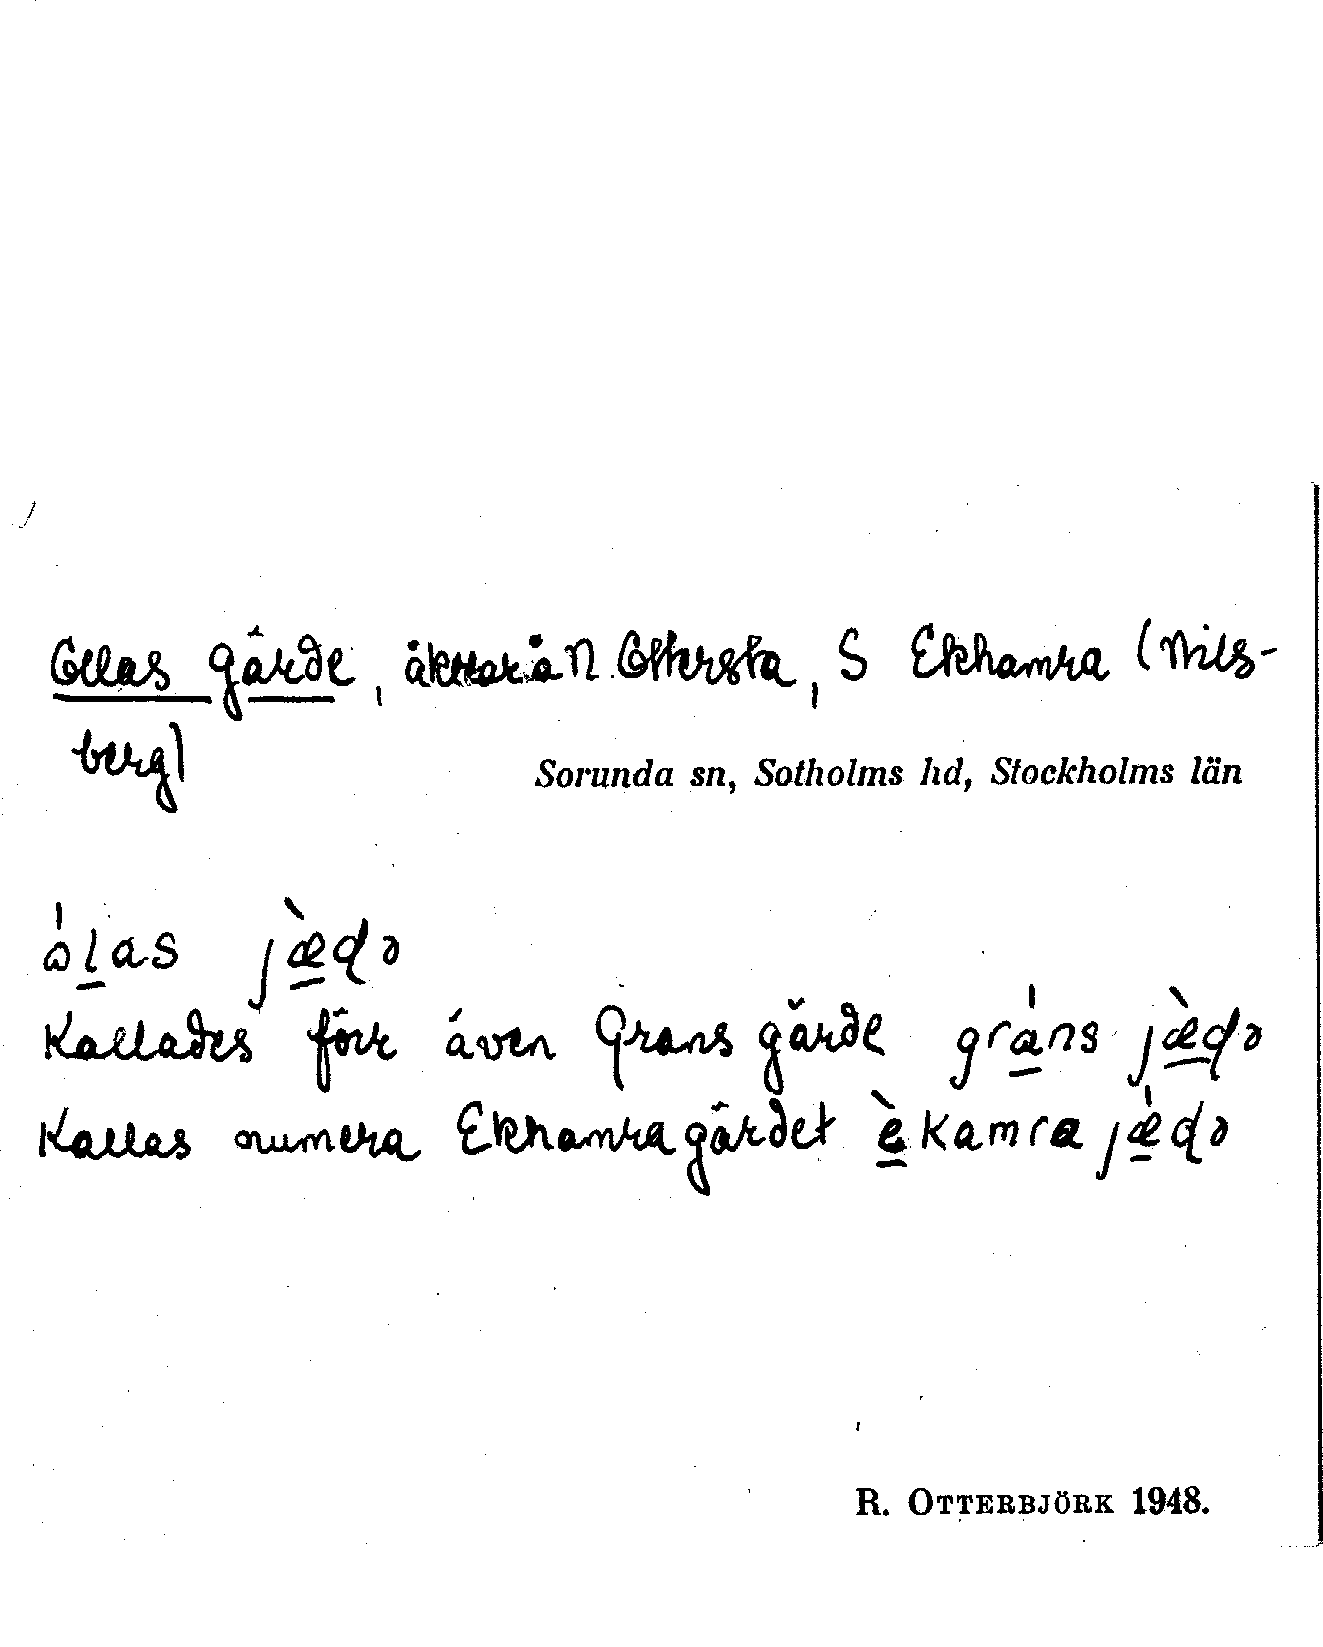 Ollas gärde, åkrar å N Ottersta, S Ekhamra (Nils-
berg)
Sorunda sn, Sotholms hd, Stockholms län
ólas jæ̀ḍə
Kallades förr även Grans gärde gráns jæ̀ḍə
Kallas numera Ekhamragärdet èkamrajæ̀ḍə
R. OTTERBJÖRK 1948.